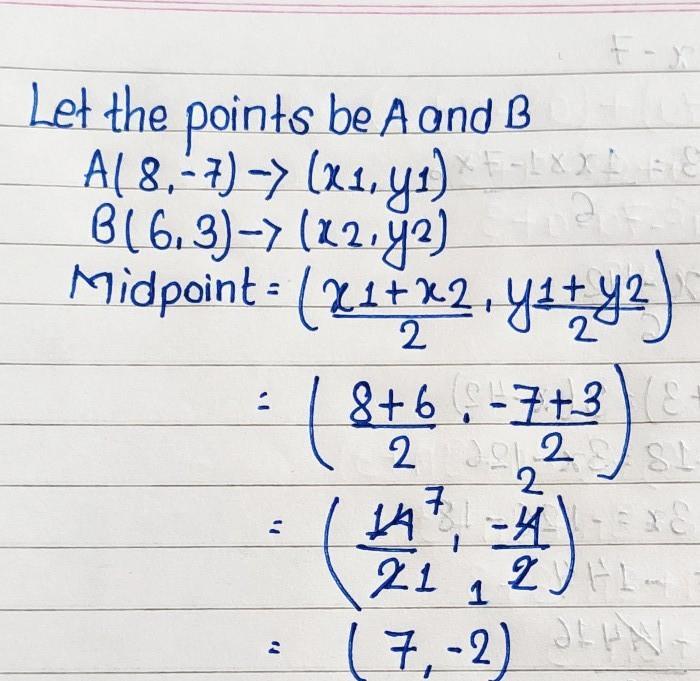 Let the points be A and B
A(8,-7)->(x1,y1)
B(6,3)->(x2,y2)
Midpoint = (x1+x2/2, y1+y2/2)
= (8+6/2, -7+3/2)
= (14 7/2 1, -4 2/2 1)
= (7,-2)